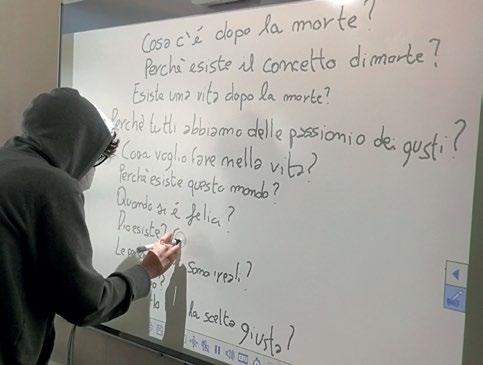 Cosa c'é dopo la morte?
Perchè esiste il concetto di morte?
Esiste una vita dopo la morte?
Perchè tutti abbiamo delle passioni o dei gusti?
Cosa voglio fare nella vita?
Perchè esiste questo mondo?
Quando si é felici?
Dio esiste?
Le sono reali?
la scelta giusta?